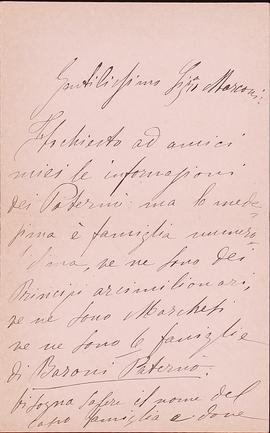 Gentilissimo Sigr Marconi:
Ho chiesto ad amici
miei le informazioni
dei Paternò: ma la mede=
sima è famiglia numero=
sima, ve ne sono dei
Principi arcimilionari,
ve ne sono Marchesi
ve ne sono 6 famiglie
di Baroni Paternò.
Bisogna sapere il nome del
capo famiglia e dove